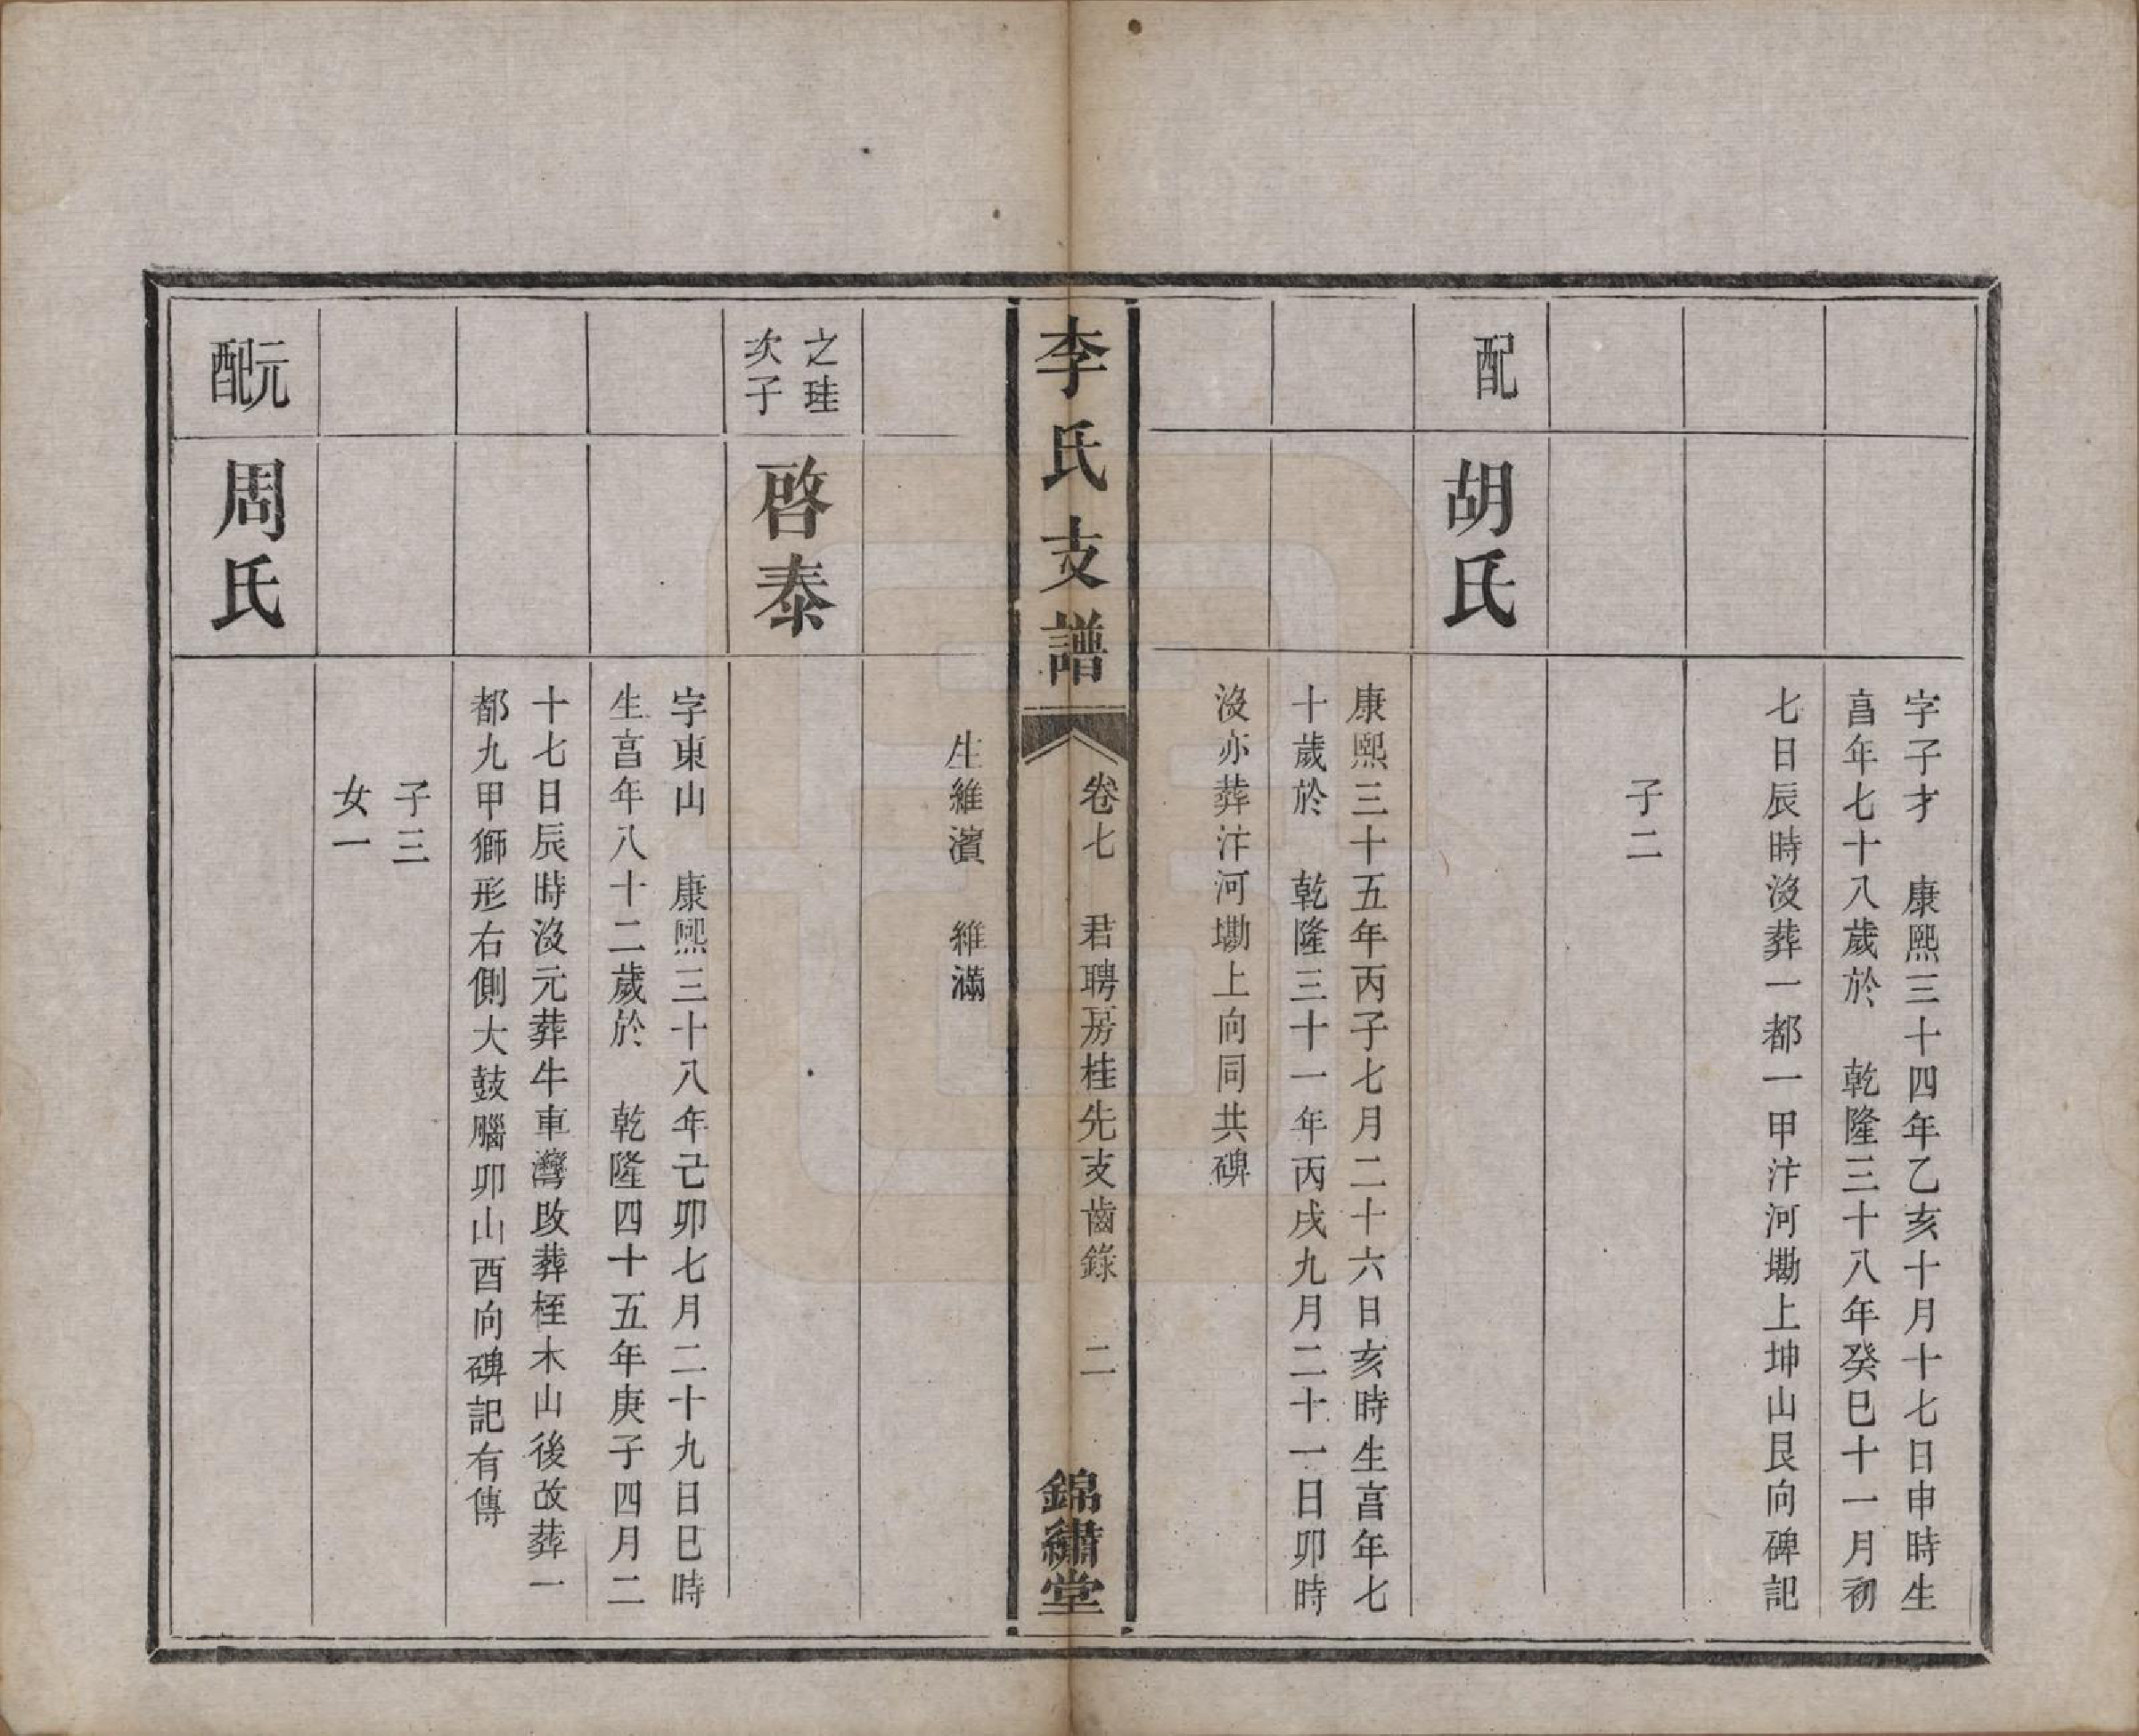 字子才　康熙三十四年乙亥十月十七日申時生
亯年七十八歲於　乾隆三十八年癸巳十一月初
七日辰時沒葬一都一甲汴河墈上坤山艮向碑記
子二
配
胡氏
康熙三十五年丙子七月二十六日亥時生亯年七
十歲於　乾隆三十一年丙戌九月二十一日卯時
沒亦葬汴河墈上向同共碑
李氏支譜
卷七　君聘房桂先支齒錄　二
錦繡堂
生維濱　維滿
之珪
次子
啓泰
字東山　康熙三十八年己卯七月二十九日巳時
生亯年八十二歲於　乾隆四十五年庚子四月二
十七日辰時沒元葬牛車灣改葬桎木山後故葬一
都九甲獅形右側大鼓腦卯山酉向碑記有傳
子三
女一
元配
周氏